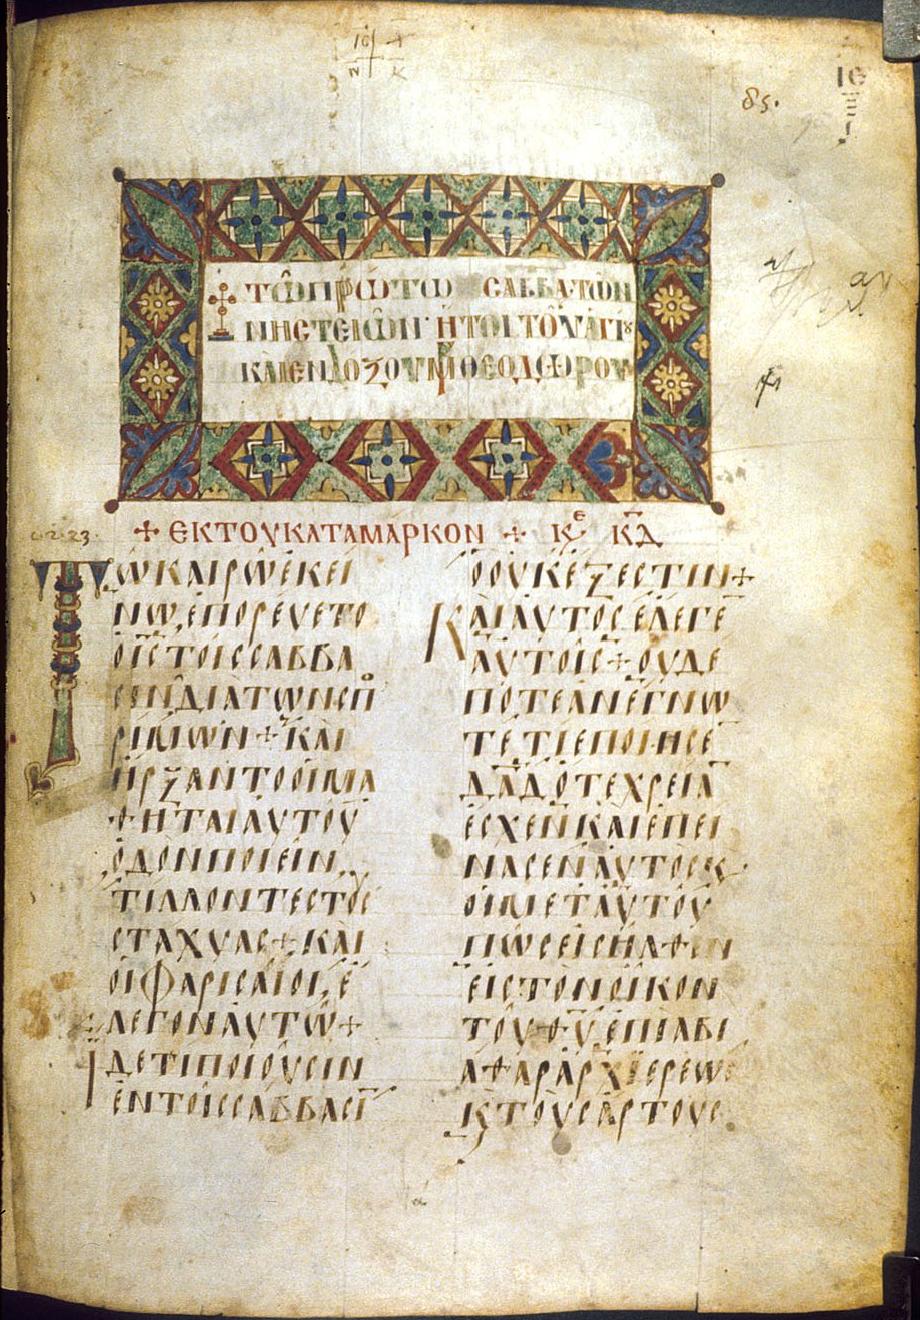 85.
ΤΩ ΠΡΩΤΩ ΣΑΒΒΑΤΩ ΤΩΝ
ΝΗΣΤΕΙΩΝ· ΗΤΟΙ ΤΟΥ ΑΓΙȢ
ΚΑΙ ΕΝΔΟΞΟΥ Μ ΘΕΟΔΩΡΟΥ
+ ΕΚ ΤΟΥ ΚΑΤΑ ΜΑΡΚΟΝ + ΚΕ ΚΔ
2.23
ΤΩ ΚΑΙΡΩ ΕΚΕΙ
ΝΩ, ΕΠΟΡΕΥΕΤΟ
Ο ΙΣ ΤΟΙΣ ΣΑΒΒΑ
ΣΙΝ ΔΙΑ ΤΩΝ ΣΠΟ
ΡΙΜΩΝ + ΚΑΙ
ΗΡΞΑΝΤΟ ΟΙ ΜΑ
ΘΗΤΑΙ ΑΥΤΟΥ
ΟΔΟΝ ΠΟΙΕΙΝ,
ΤΙΛΛΟΝΤΕΣ ΤΟΥΣ
ΣΤΑΧΥΑΣ + ΚΑΙ
ΟΙ ΦΑΡΙΣΑΙΟΙ, Ε
ΛΕΓΟΝ ΑΥΤΩ +
ΙΔΕ ΤΙ ΠΟΙΟΥΣΙΝ
ΕΝ ΤΟΙΣ ΣΑΒΒΑΣΙ
Ο ΟΥΚ ΕΞΕΣΤΙΝ +
ΚΑΙ ΑΥΤΟΣ ΕΛΕΓΕ
ΑΥΤΟΙΣ + ΟΥΔΕ
ΠΟΤΕ ΑΝΕΓΝΩ
ΤΕ, ΤΙ ΕΠΟΙΗΣΕ
ΔΑΔ ΟΤΕ ΧΡΕΙΑ
ΕΣΧΕΝ ΚΑΙ ΕΠΕΙ
ΝΑΣΕΝ ΑΥΤΟΣ Κ
ΟΙ ΜΕΤ ΑΥΤΟΥ
ΠΩΣ ΕΙΣΗΛΘΕΝ
ΕΙΣ ΤΟΝ ΟΙΚΟΝ
ΤΟΥ ΘΥ ΕΠΙ ΑΒΙ
ΑΘΑΡ ΑΡΧΙΕΡΕΩΣ
Κ ΤΟΥΣ ΑΡΤΟΥΣ